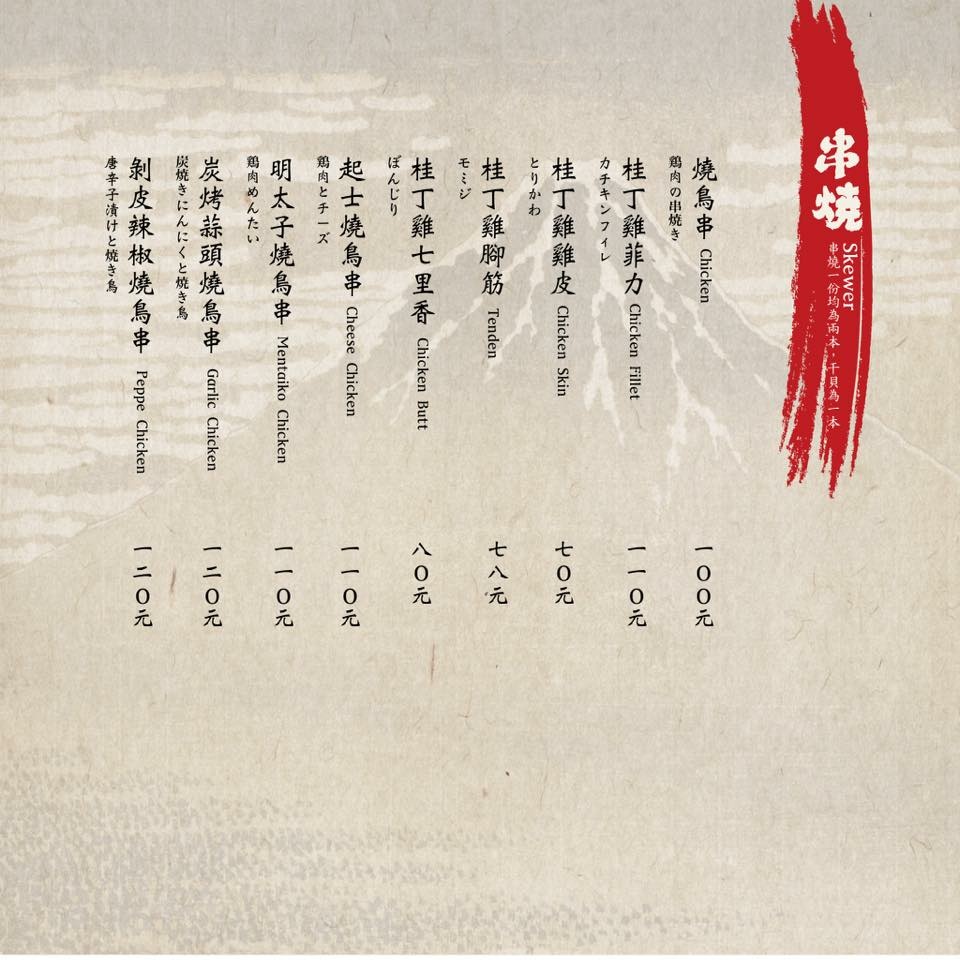 串燒
Skewer
串燒一份均為兩本，干貝為一本
燒鳥串 Chicken
鶏肉の串焼き
一〇〇元
桂丁雞菲力 Chicken Fillet
カチキンフィレ
一一〇元
桂丁雞雞皮 Chicken Skin
とりかわ
七〇元
桂丁雞腳筋 Tenden
モミジ
七八元
桂丁雞七里香 Chicken Butt
ぼんじり
八〇元
起士燒鳥串 Cheese Chicken
鶏肉とチーズ
一一〇元
明太子燒鳥串 Mentaiko Chicken
鶏肉めんたい
一一〇元
炭烤蒜頭燒鳥串 Garlic Chicken
炭焼きにんにくと焼き鳥
一二〇元
剝皮辣椒燒鳥串 Peppe Chicken
唐辛子漬けと焼き鳥
一二〇元